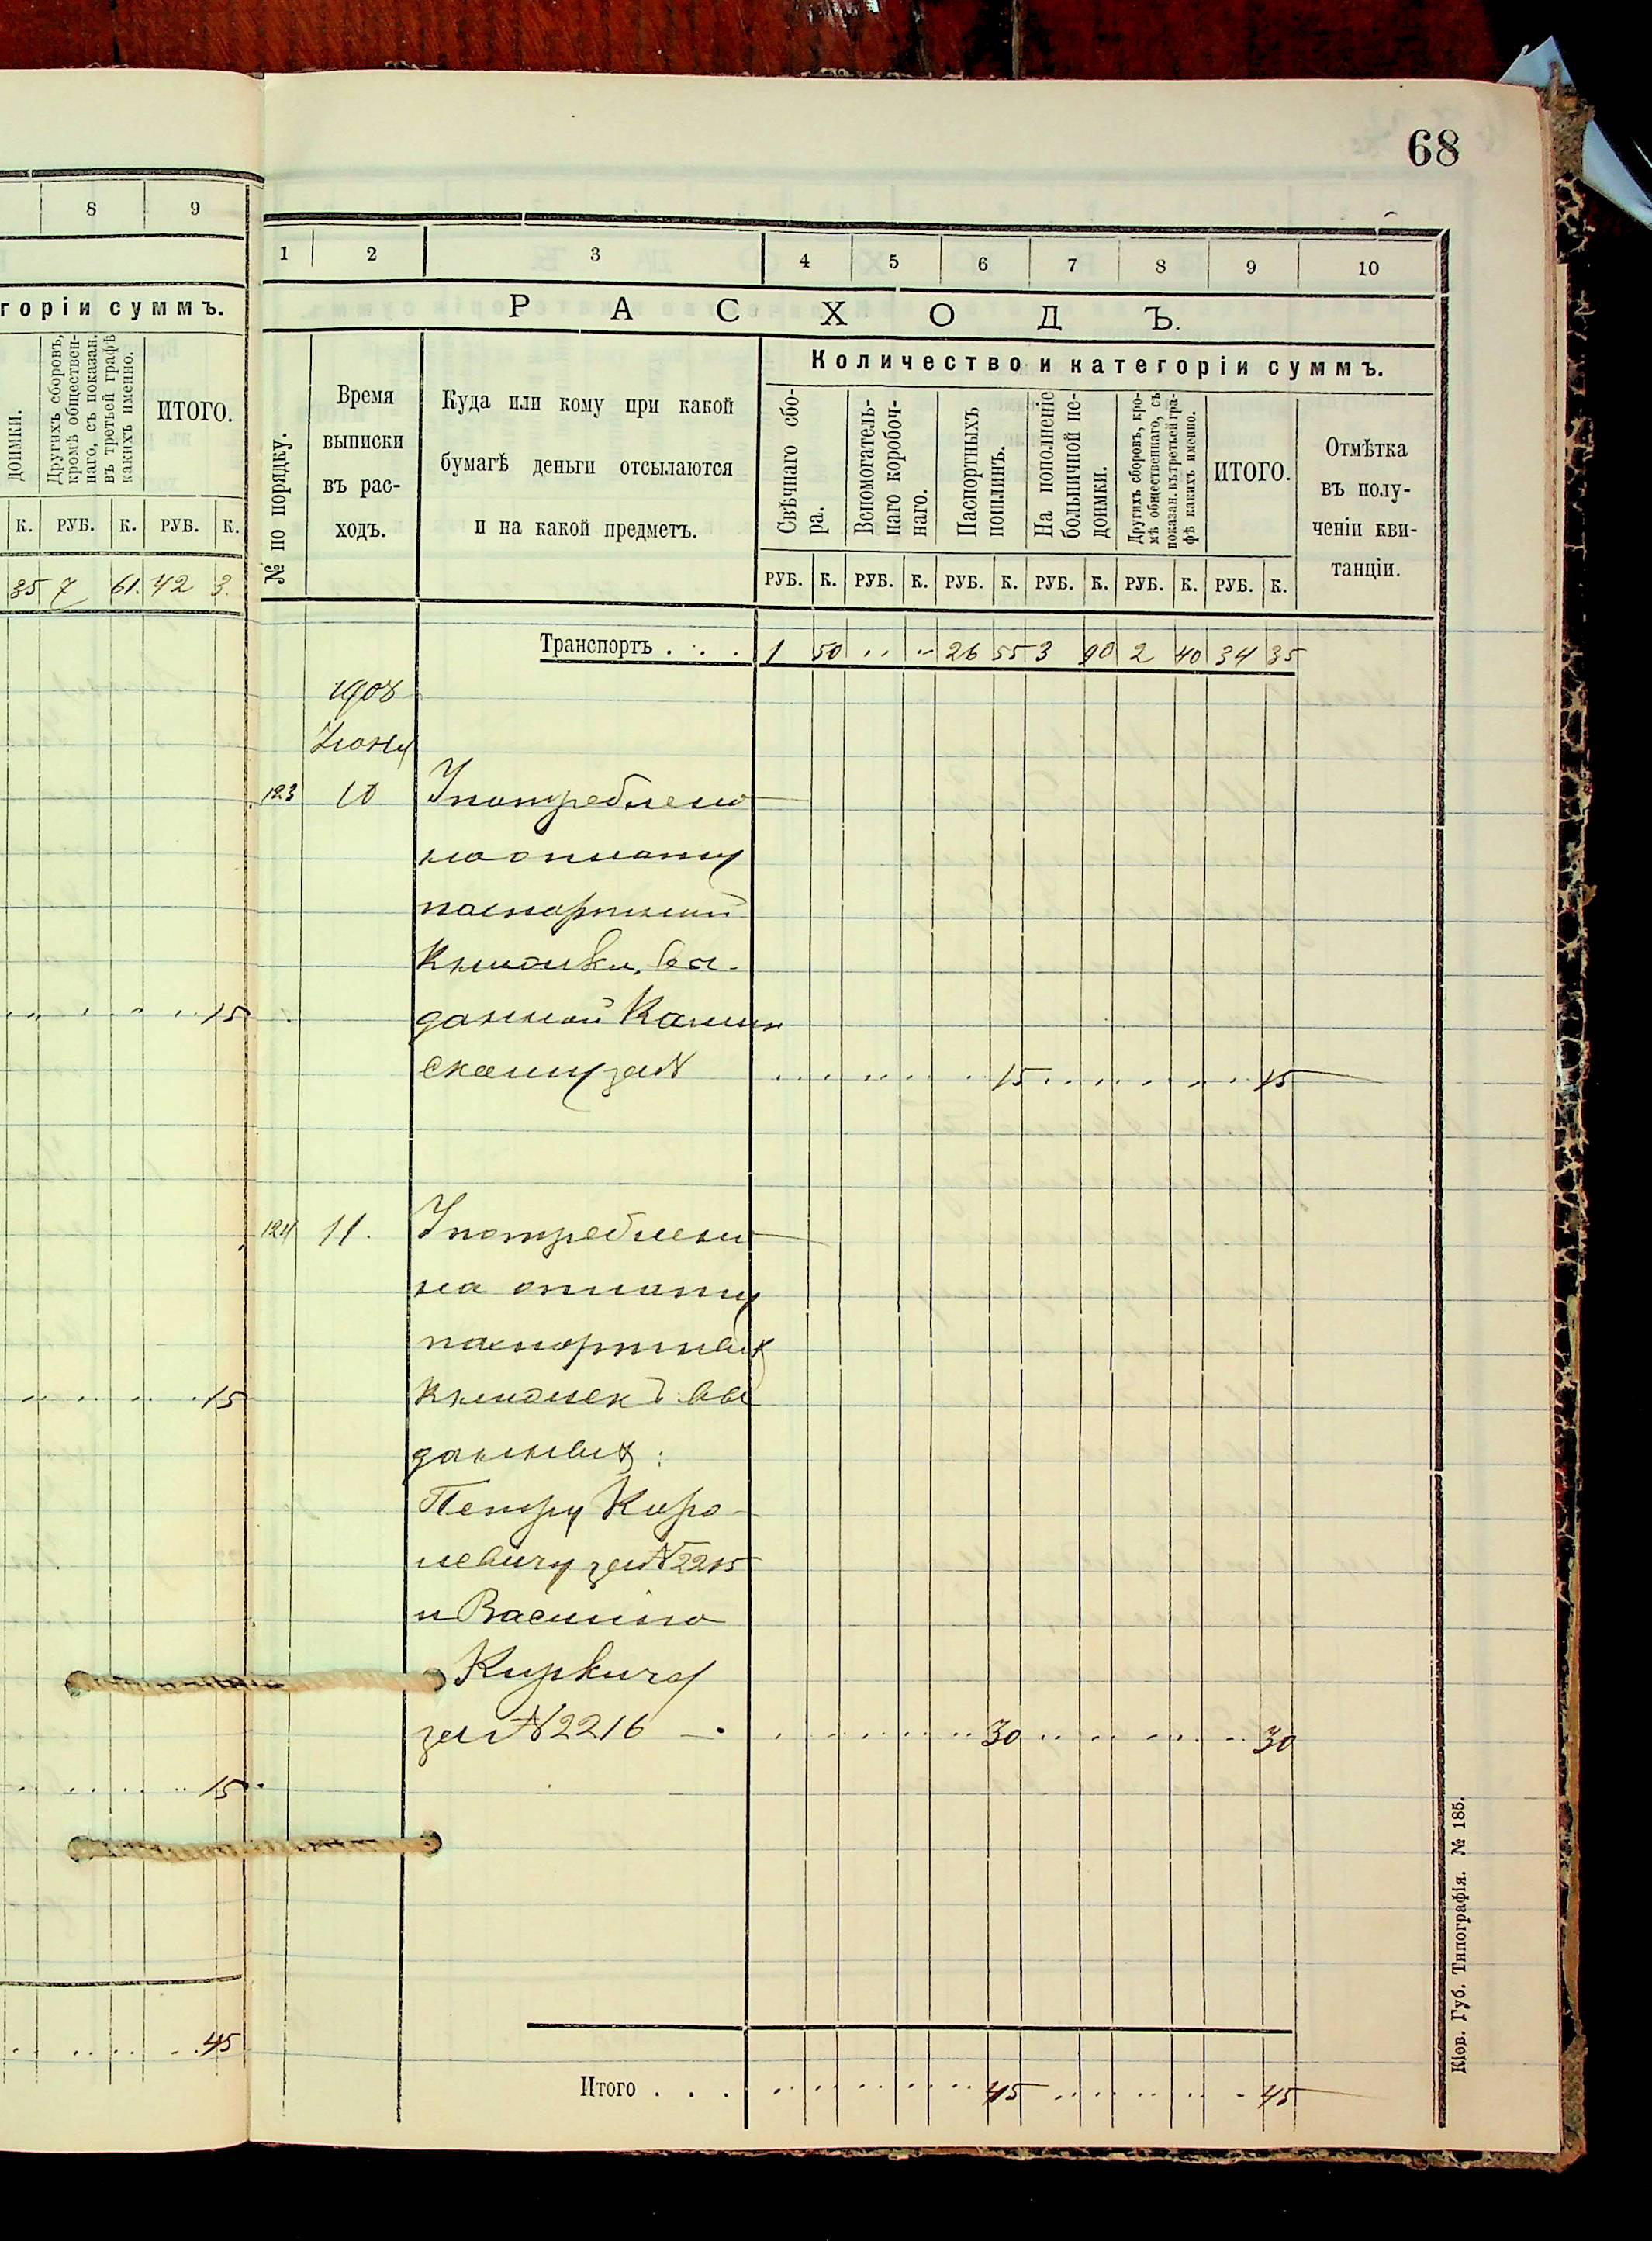 68
8 9
горіи суммъ.
доимки.
Другихъ сборовъ,
кромѣ обществен-
наго, съ показан.
въ третьей графѣ
какихъ именно.
ИТОГО.
К. РУБ. К. РУБ. К.
35 7 61. 42 3.
15
15
15
45
1 2 3 4 5 6 7 8 9 10
РАСХОДЪ.
№ по порядку.
Время
выписки
въ рас-
ходъ.
Куда или кому при какой
бумагѣ деньги отсылаются
и на какой предметъ.
Количество и категоріи суммъ.
Свѣчнаго сбо-
ра.
Вспомогатель-
наго коробоч-
наго.
Паспортныхъ
пошлинъ.
На пополненіе
больничной не-
доимки.
Другихъ сборовъ, кро-
мѣ общественнаго, съ
показан. въ третьей гра-
фѣ какихъ именно.
ИТОГО.
Отмѣтка
въ полу-
ченіи кви-
танціи.
РУБ. К. РУБ. К. РУБ. К. РУБ. К. РУБ. К. РУБ. К.
Транспортъ . . . 1 50 .. .. 26 55 3 90 2 40 34 35
1908
Іюня
123 10 Употреблено
на оплату
паспортной
Книжки, вы-
данной
за № 15 15
124 11. Употреблено
на оплату
паспортных
книжекъ вы
данных:
Петру Коро-
левичу за № 2215
и Василію
Кирвичу
за № 2216 — 30 30
Итого . . . 45 45
Кіев. Губ. Типографія. № 185.